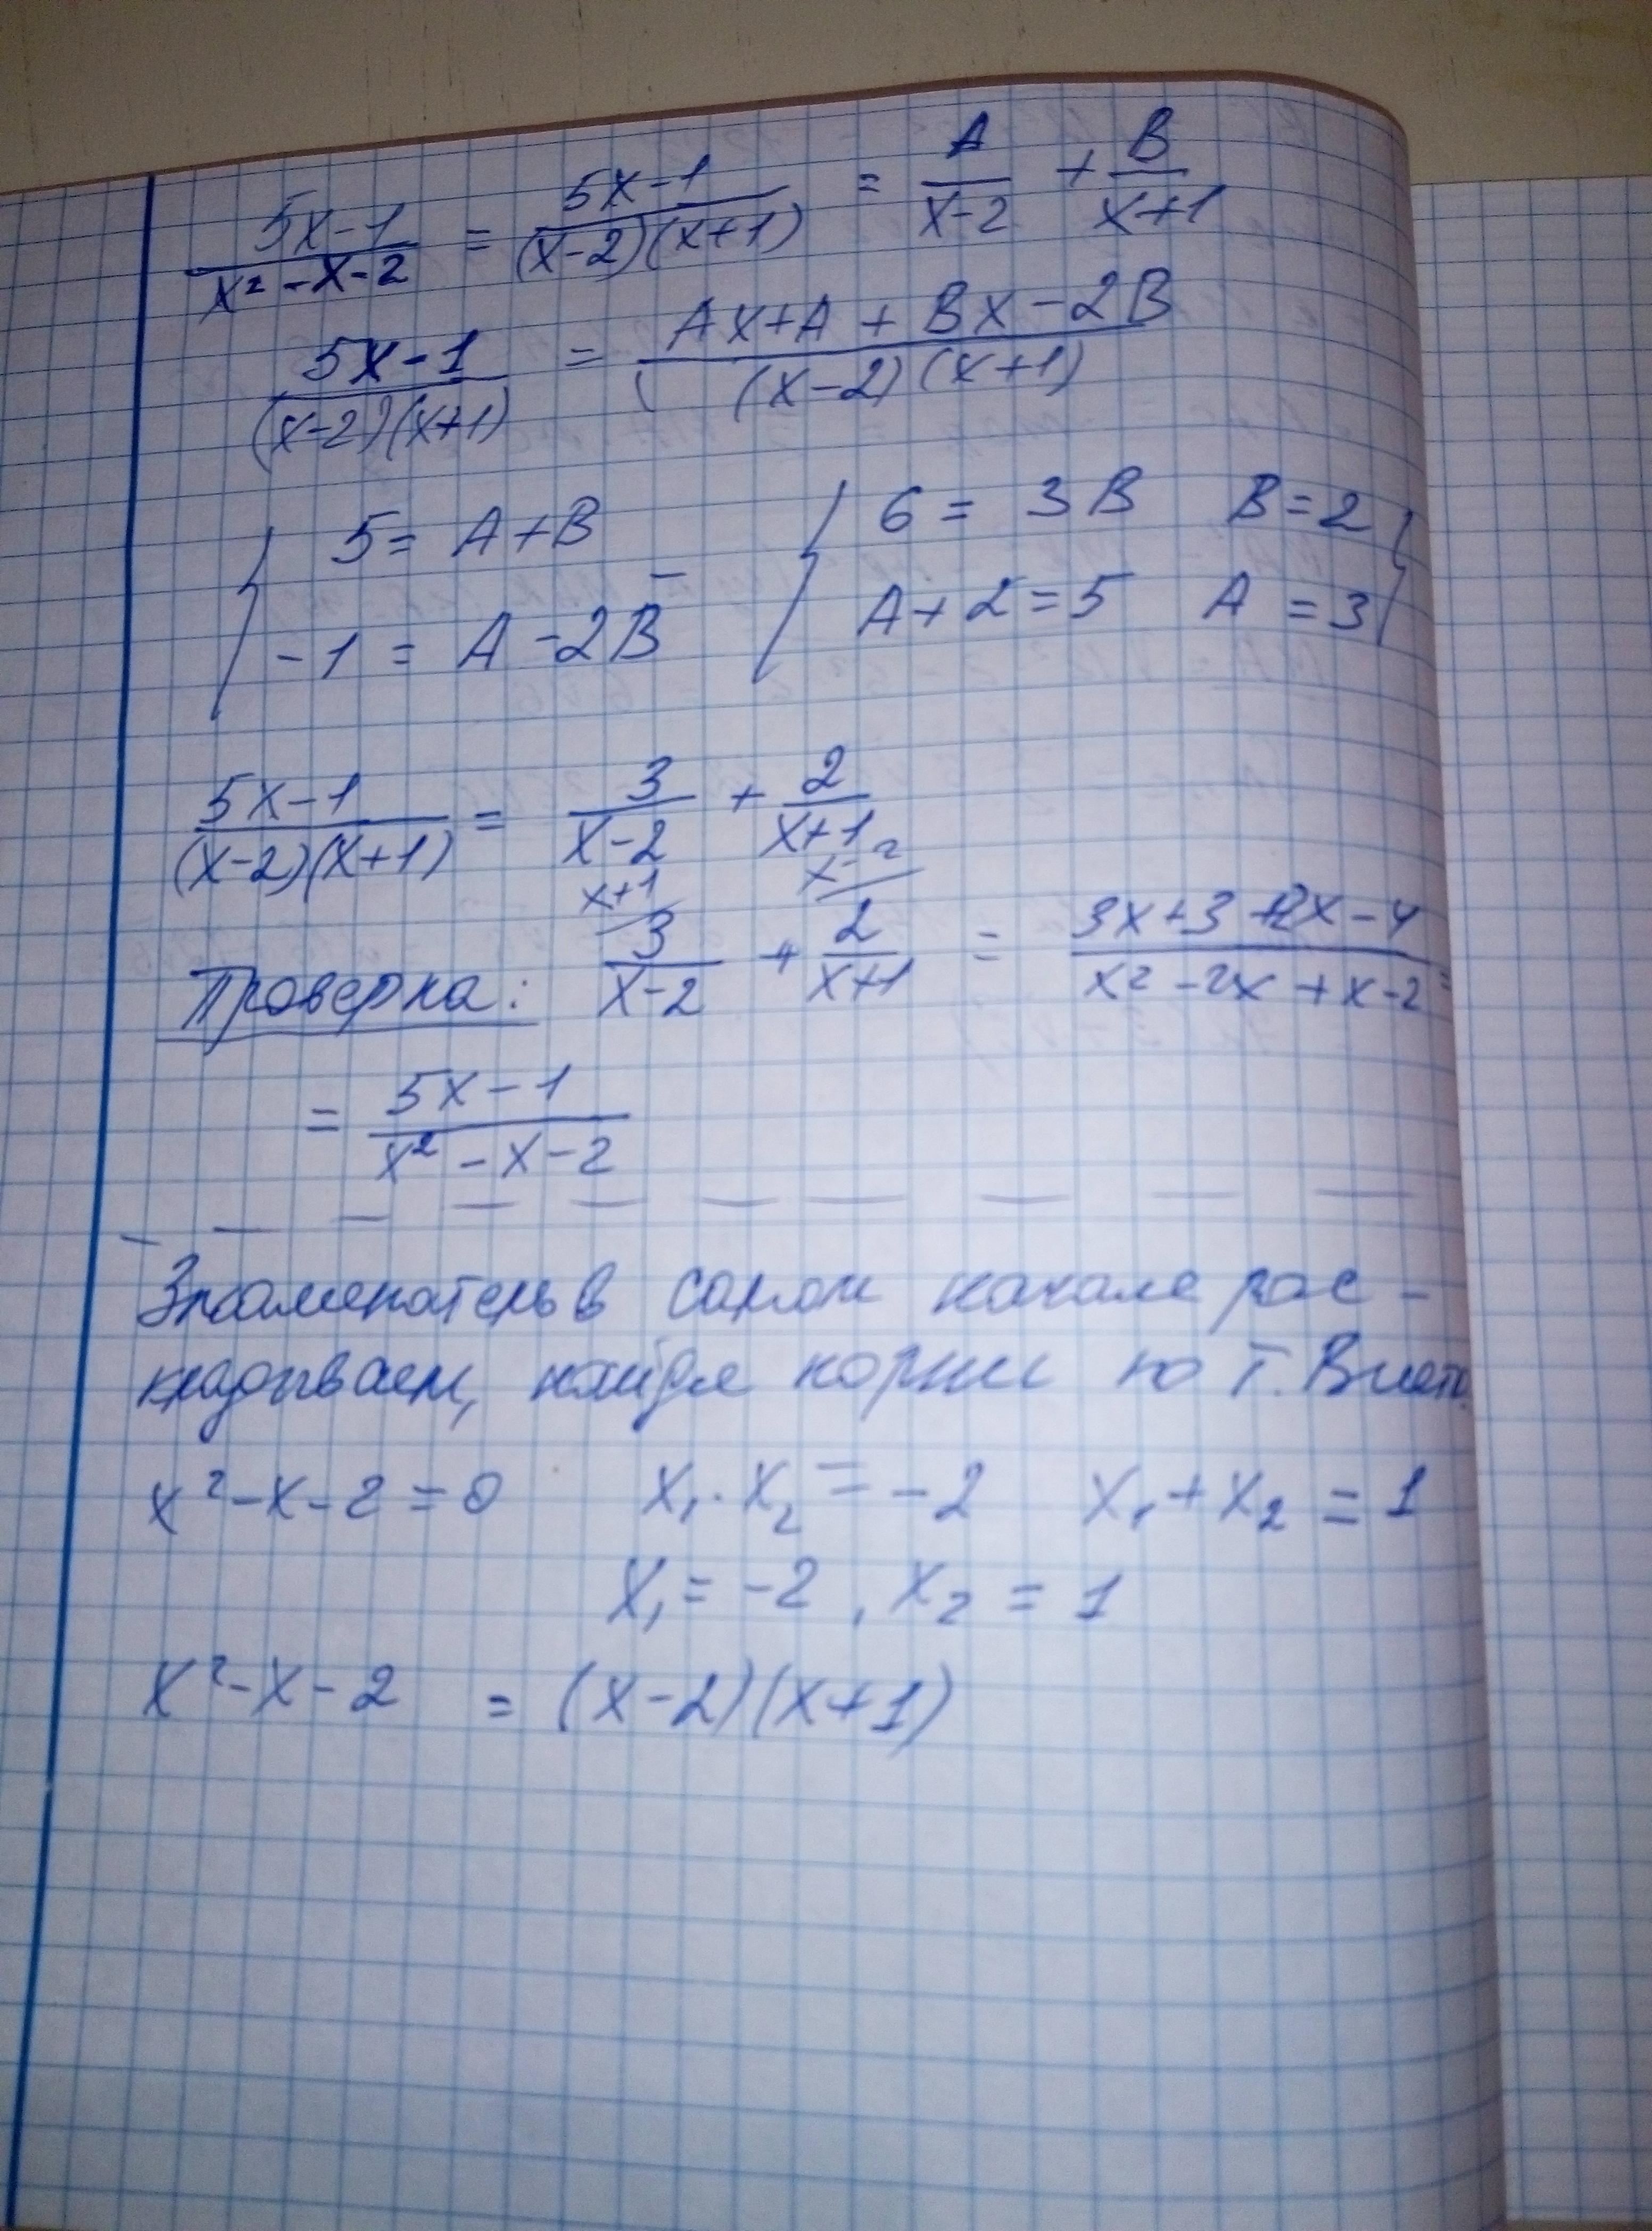 (5x-1)/(x²-x-2) = (5x-1)/((x-2)(x+1)) = A/(x-2) + B/(x+1)
(5x-1)/((x-2)(x+1)) = (Ax+A+Bx-2B)/((x-2)(x+1))
{ 5 = A+B { 6 = 3B B=2 }
-1 = A-2B – A+2=5 A=3
(5x-1)/((x-2)(x+1)) = 3/(x-2) + 2/(x+1)
x+1 x-2
Проверка: 3/(x-2) + 2/(x+1) = (3x+3+2x-4)/(x²-2x+x-2) =
= (5x-1)/(x²-x-2)
Знаменатель в самом начале рас-
кладываем, найдя корни по т. Виета.
x²-x-2=0 x₁·x₂=-2 x₁+x₂=1
x₁=-2, x₂=1
x²-x-2 = (x-2)(x+1)